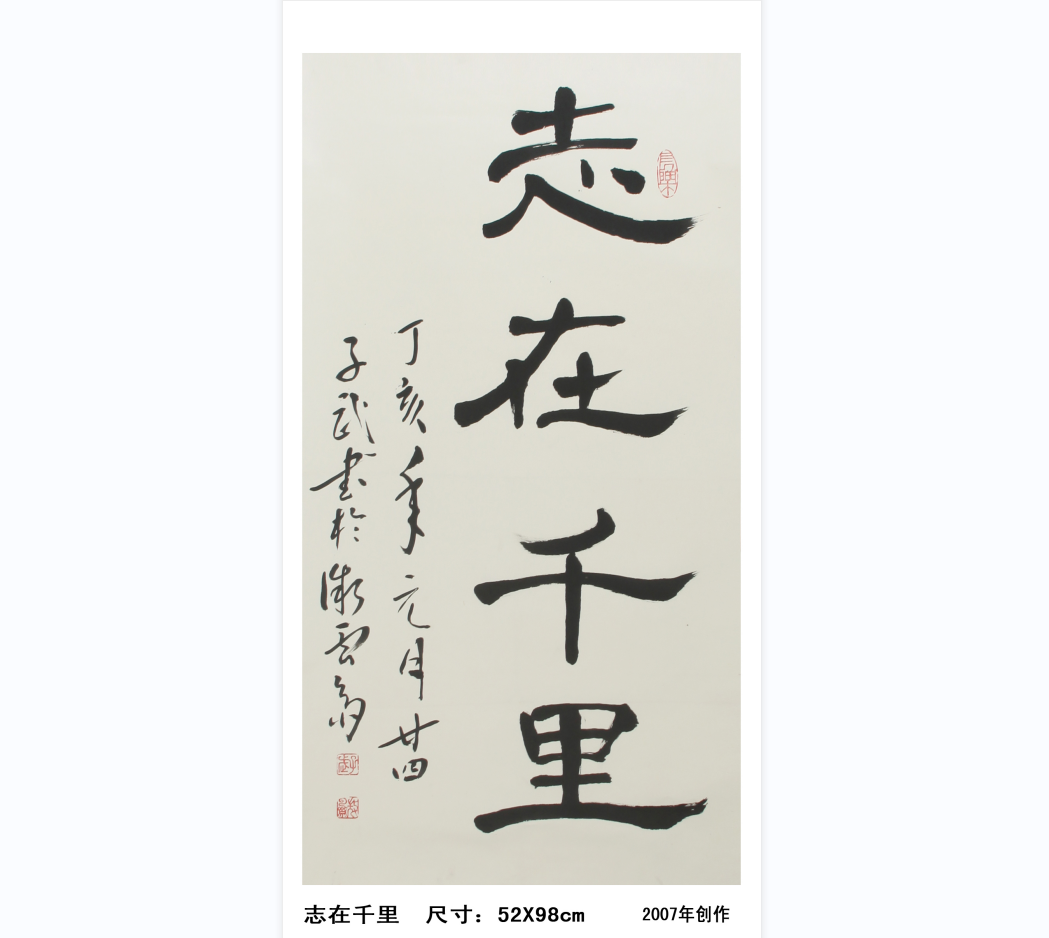 志在千里
丁亥年元月廿四
子武书於漱云斋
志在千里 尺寸：52X98cm
2007年创作